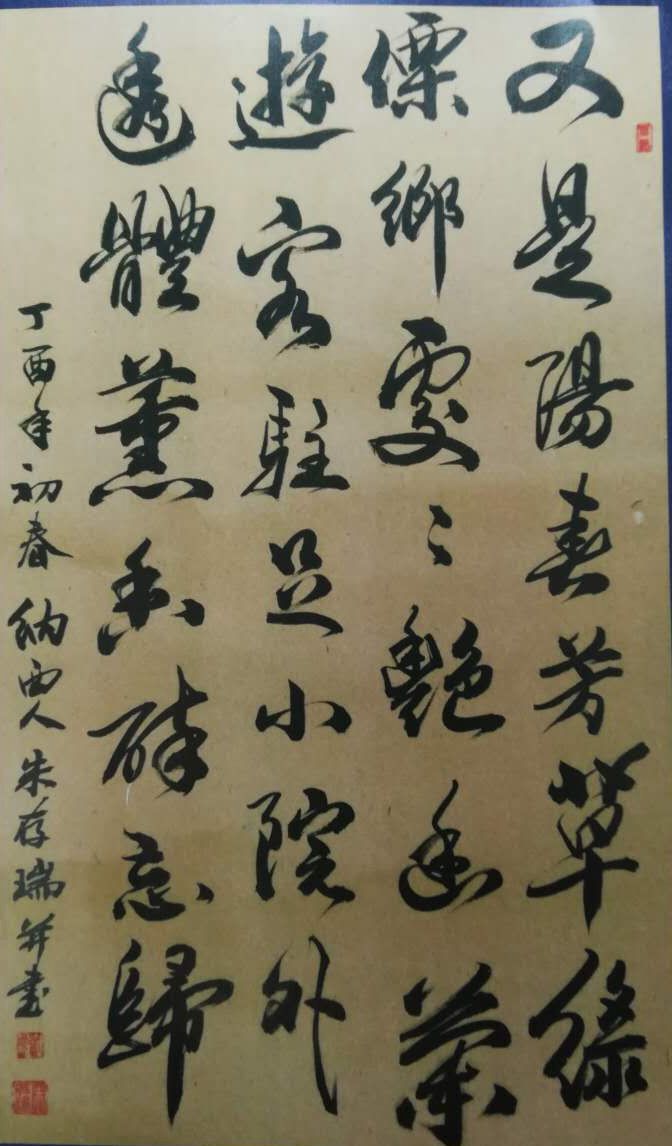 又是陽春芳草綠
傈鄉處〻艷幽蘭
遊客駐足小院外
透體薰香醉忘歸
丁酉年初春納西人朱存瑞并書